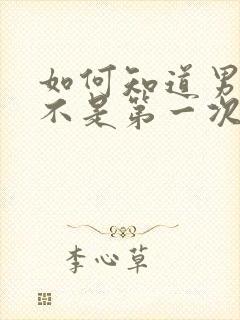 如何知道男
不是第一次
李心草